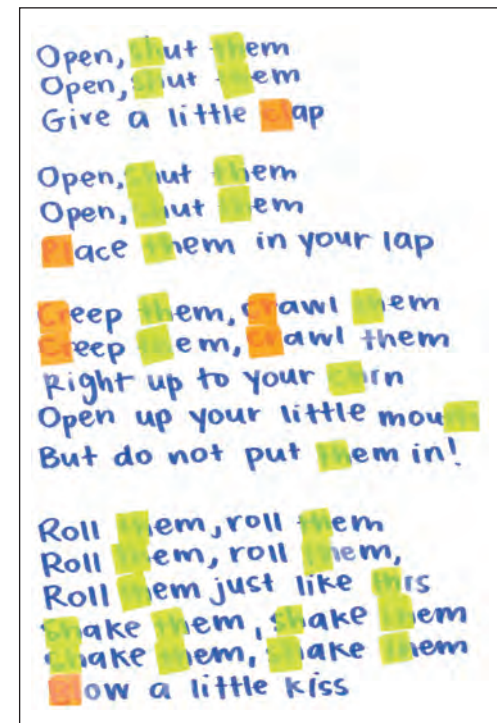 Open, shut them
Open, shut them
Give a little clap
Open, shut them
Open, shut them
Place them in your lap
Creep them, crawl them
Creep them, crawl them
Right up to your chin
Open up your little mouth
But do not put them in!
Roll them, roll them
Roll them, roll them,
Roll them just like this
Shake them, shake them
Shake them, shake them
Blow a little kiss